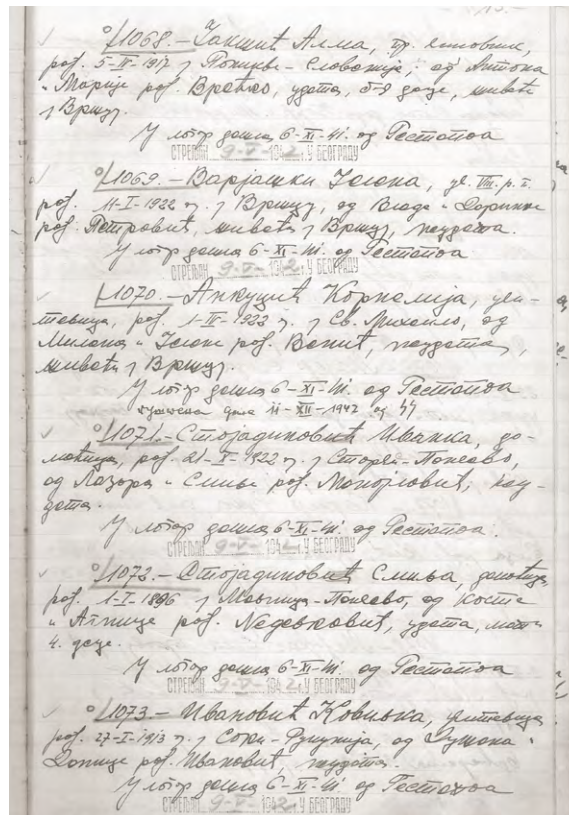 1068.- Јакшић Алма, пр. чиновник,
рођ. 5-IV-1917 у Пакрацу-Славонија, од Антона
и Марије рођ. Братко, удата, без деце, живи
у Вршцу.
У логор дошла 6-XI-41. од Гестапоа
СТРЕЉАН 9-V-1942 г. У БЕОГРАДУ
1069.- Варјашки Јелена, уч. VIII. р. г.
рођ. 11-I-1922 г. у Вршцу, од Владе и Даринке
рођ. Петровић, живи у Вршцу, неудата.
У логор дошла 6-XI-41. од Гестапоа
СТРЕЉАН 9-V-1942 г. У БЕОГРАДУ
1070.- Анкуцић Корнелија, учи-
тељица, рођ. 1-IV-1922 г. у Св. Михаило, од
Милана и Јелене рођ. неудата,
живи у Вршцу.
У логор дошла 6-XI-41. од Гестапоа
дана 11-XII-1942 од
1071.- Стојадиновић Иванка, до-
маћица, рођ. 21-I-1922 г. у
од Лазара и Смиље рођ. Манојловић, неу-
дата.
У логор дошла 6-XI-41. од Гестапоа.
СТРЕЉАН 9-V-1942 г. У БЕОГРАДУ
1072.- Стојадиновић Смиља, домаћица
рођ. 1-I-1896 у од Косте
и рођ. Недељковић, удата, мати
4. деце.
У логор дошла 6-XI-41. од Гестапоа
СТРЕЉАН 9-V-1942 г. У БЕОГРАДУ
1073.- Ивановић Ковиљка, учитељица
рођ. 27-I-1913 г. у од Душана и
рођ. Ивановић, неудата.
У логор дошла 6-XI-41. од Гестапоа
СТРЕЉАН 9-V-1942 г. У БЕОГРАДУ